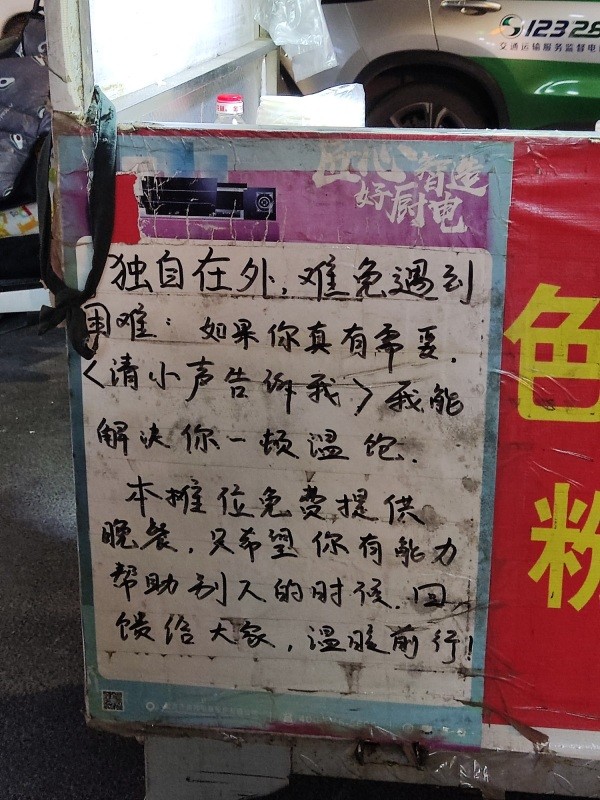 123 28
交通运输服务监督电
匠心智造
好厨电
独自在外,难免遇到
困难:如果你真有需要.
<请小声告诉我>我能
解决你一顿温饱.
本摊位免费提供
晚餐,只希望你有能力
帮助别人的时候.回
馈给大家,温暖前行!
色
粉